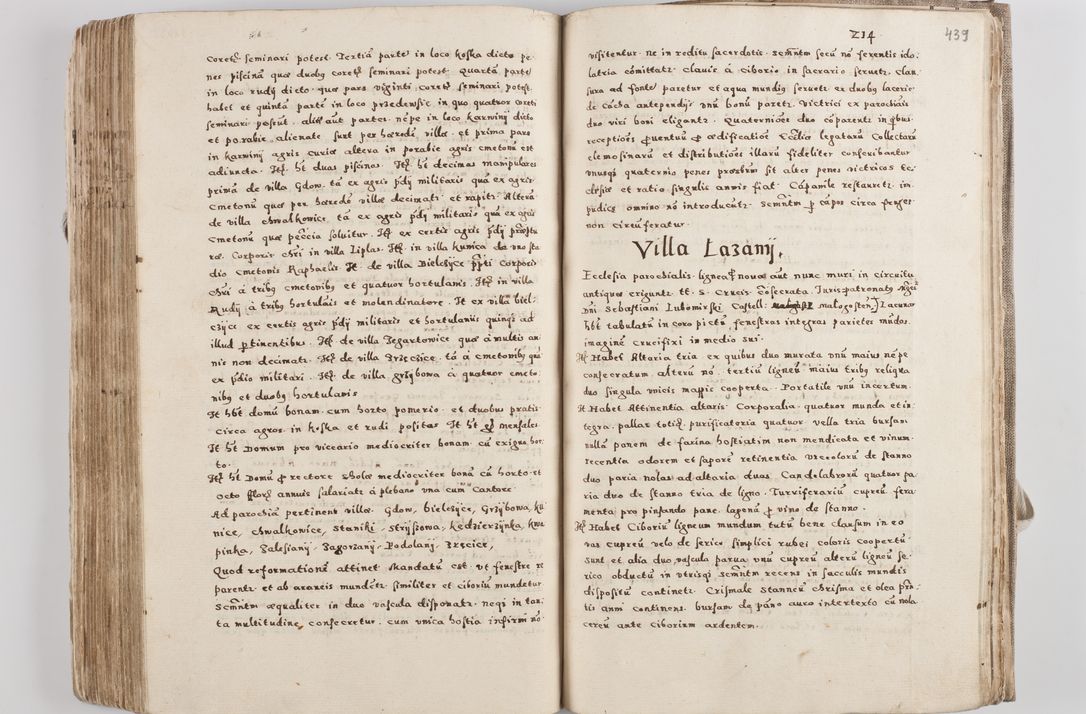 coretꝫ seminari potest. Tertiā partē in loco koska dicto pe-
nes piscinā quae duobꝰ coretꝫ seminari potest. quartā partē
in loco rudÿ dicto. quae pars viginti coretꝫ seminari potest.
habet et quintā partē in loco przedewsic in quo quatuor coreti
seminari possūt. aliae aūt partes. nēpe in loco karwinÿ dicto
et porabie alienatae sūt per haeredē villae. et prima pars
in karwinÿ agris curiae altera in porabie agris cmetonū est
adiuncta. Itꝫ hꝫ duas piscinas. Itꝫ ht decimas manipulares
primā de villa Gdow. tā ex agris pdÿ militaris quā ex agris
cmetonū quae per haeredē villae decimatꝰ et rapitꝰ. Alterā
de villa chwalkowice tā ex agris pdÿ militaris quā ex agris
cmetonū quae pecūia solvitur. Itꝫ ex certis agris pdÿ
Corporis chri in villa Liplas. Itꝫ in villa kunica de vno sta
dio cmetonis Raphaelis. It de villa Bielczÿce Corporis
chri à tribꝰ cmetonibꝰ et quatuor hortulanis. Itꝫ in villa
Rudÿ à tribꝰ hortulanis et molendinatore. It ex villa biel-
czÿce ex certis agris pdÿ militaris et hortulanis quinqꝫ ad
illud pertinentibus. Itꝫ de villa Jegartowice quae à multis an
nis non decimatꝰ. Itꝫ de villa Brzezice. tā à cmetonibꝰ quā
ex pdio militari. Itꝫ de villa grzÿbowa à quatuor cmeto
nibꝰ et duobꝰ hortulanis
It hēt domū bonam. cum horto pomerio. et duobus pratis
circa agros in koska et rudi positas It ht mensales
It ht Domum pro vicario mediocriter bonam. cū exiguo hor
to.
Itꝫ ht Domū pro rectore scholae mediocriter bonā cū horto et
octo florꝫ annuis salariatꝰ à plebano vna cum Cantore
Ad parochiā pertinent villae. Gdow, bielczÿce, Grzÿbowa, ku
nice, chwalkowice, staniki, strÿszowa, kędzierzÿnka, kwa
pinka, Zalesianÿ, Zagorzanÿ, Podolanÿ, Brzezice,
Quod reformationē attinet Mandatū est. vt fenestrae re
parentꝰ et ab araneis mundentꝰ similiter et ciborium mundetur
Scmntm aequaliter in duo vascula disponatꝰ. neqꝫ in tan
ta multitudine consecretur. cum vnica hostia infirmi nō

214
439
visitentur. ne in reditu sacerdotis. scmntm secū nō ferentis ido
latria cōmittatꝰ. clauis à ciborio in sacrario seruetꝰ. clau
sura ad fontē paretur et aqua mundiꝰ seruetꝰ. ex duobꝰ lacerio
de cācha antependÿs vnū bonū paretꝰ. victrici ex parochiais
duo viri boni eligantꝰ. Quaterniōes duo cōparentꝰ in qꝫbus
receptiōes prouentuū pro aedificatiōe Ecclīae legatorū Collectarū
elemosinarū et distributiōes illarū fideliter conscribantur
vnusqꝫ quaternio penes prozbrūm sit alter penes victricos ec-
clesiae et ratio singulis annis fiat. Cāpanile restauretꝰ. im
pudicae omnino nō introducātꝰ. Scmntm per cāpos circa fruges
non circūferatur.
Villa Lazanÿ.
Ecclesia parochialis. lignea nouae aūt nunc muri in circuitu
antiquae erigūntꝰ tt. S. Crucis cōsecrata. Jurispatronatꝰ
Dni Sebastiani Lubomirski Castell: malogosteñ Lacunar
hēt tabulatū in coro pictū, fenestras integras parietes mūdos.
imaginē crucifixi in medio sui.
Itꝫ Habet Altaria tria ex quibus duo murata vnū maius nēpe
consecratum. alterū nō. tertiū ligneū maius tribꝰ reliqua
duo singula vnicis mappis cooperta. Portatile vnū incertum.
It Habet Attinentia altaris. Corporalia quatuor munda et in
tegra. pallas totiqꝫ. purificatoria quatuor vella tria bursam
nullā panem de farina hostiatim non mendicata et vinum.
recentia odorem et saporē retinentia vrceolorū de stanno
duo paria nolas ad altaria duas. Candelabrorū quatuor pa
ria duo de stanno tria de ligno. Turriferariū cupreū fera
menta pro pinsando pane. lagenā pro vino de stanno.
Itꝫ Habet Ciboriū ligneum mundum tutū bene clausum in eo
vas cupreū velo de serico simplici rubei coloris coopertū.
sunt et alia duo vascula parua vnū cupreū alterū ligneū se.
rico obductū in vtrisqꝫ scmntm recens in sacculis mundis
dispositū continetꝰ. Crismale stanneū chrisma et olea prn
tis anni continens. bursam de pāno auro intertexto cū nola
cereū ante Ciborium ardentem.